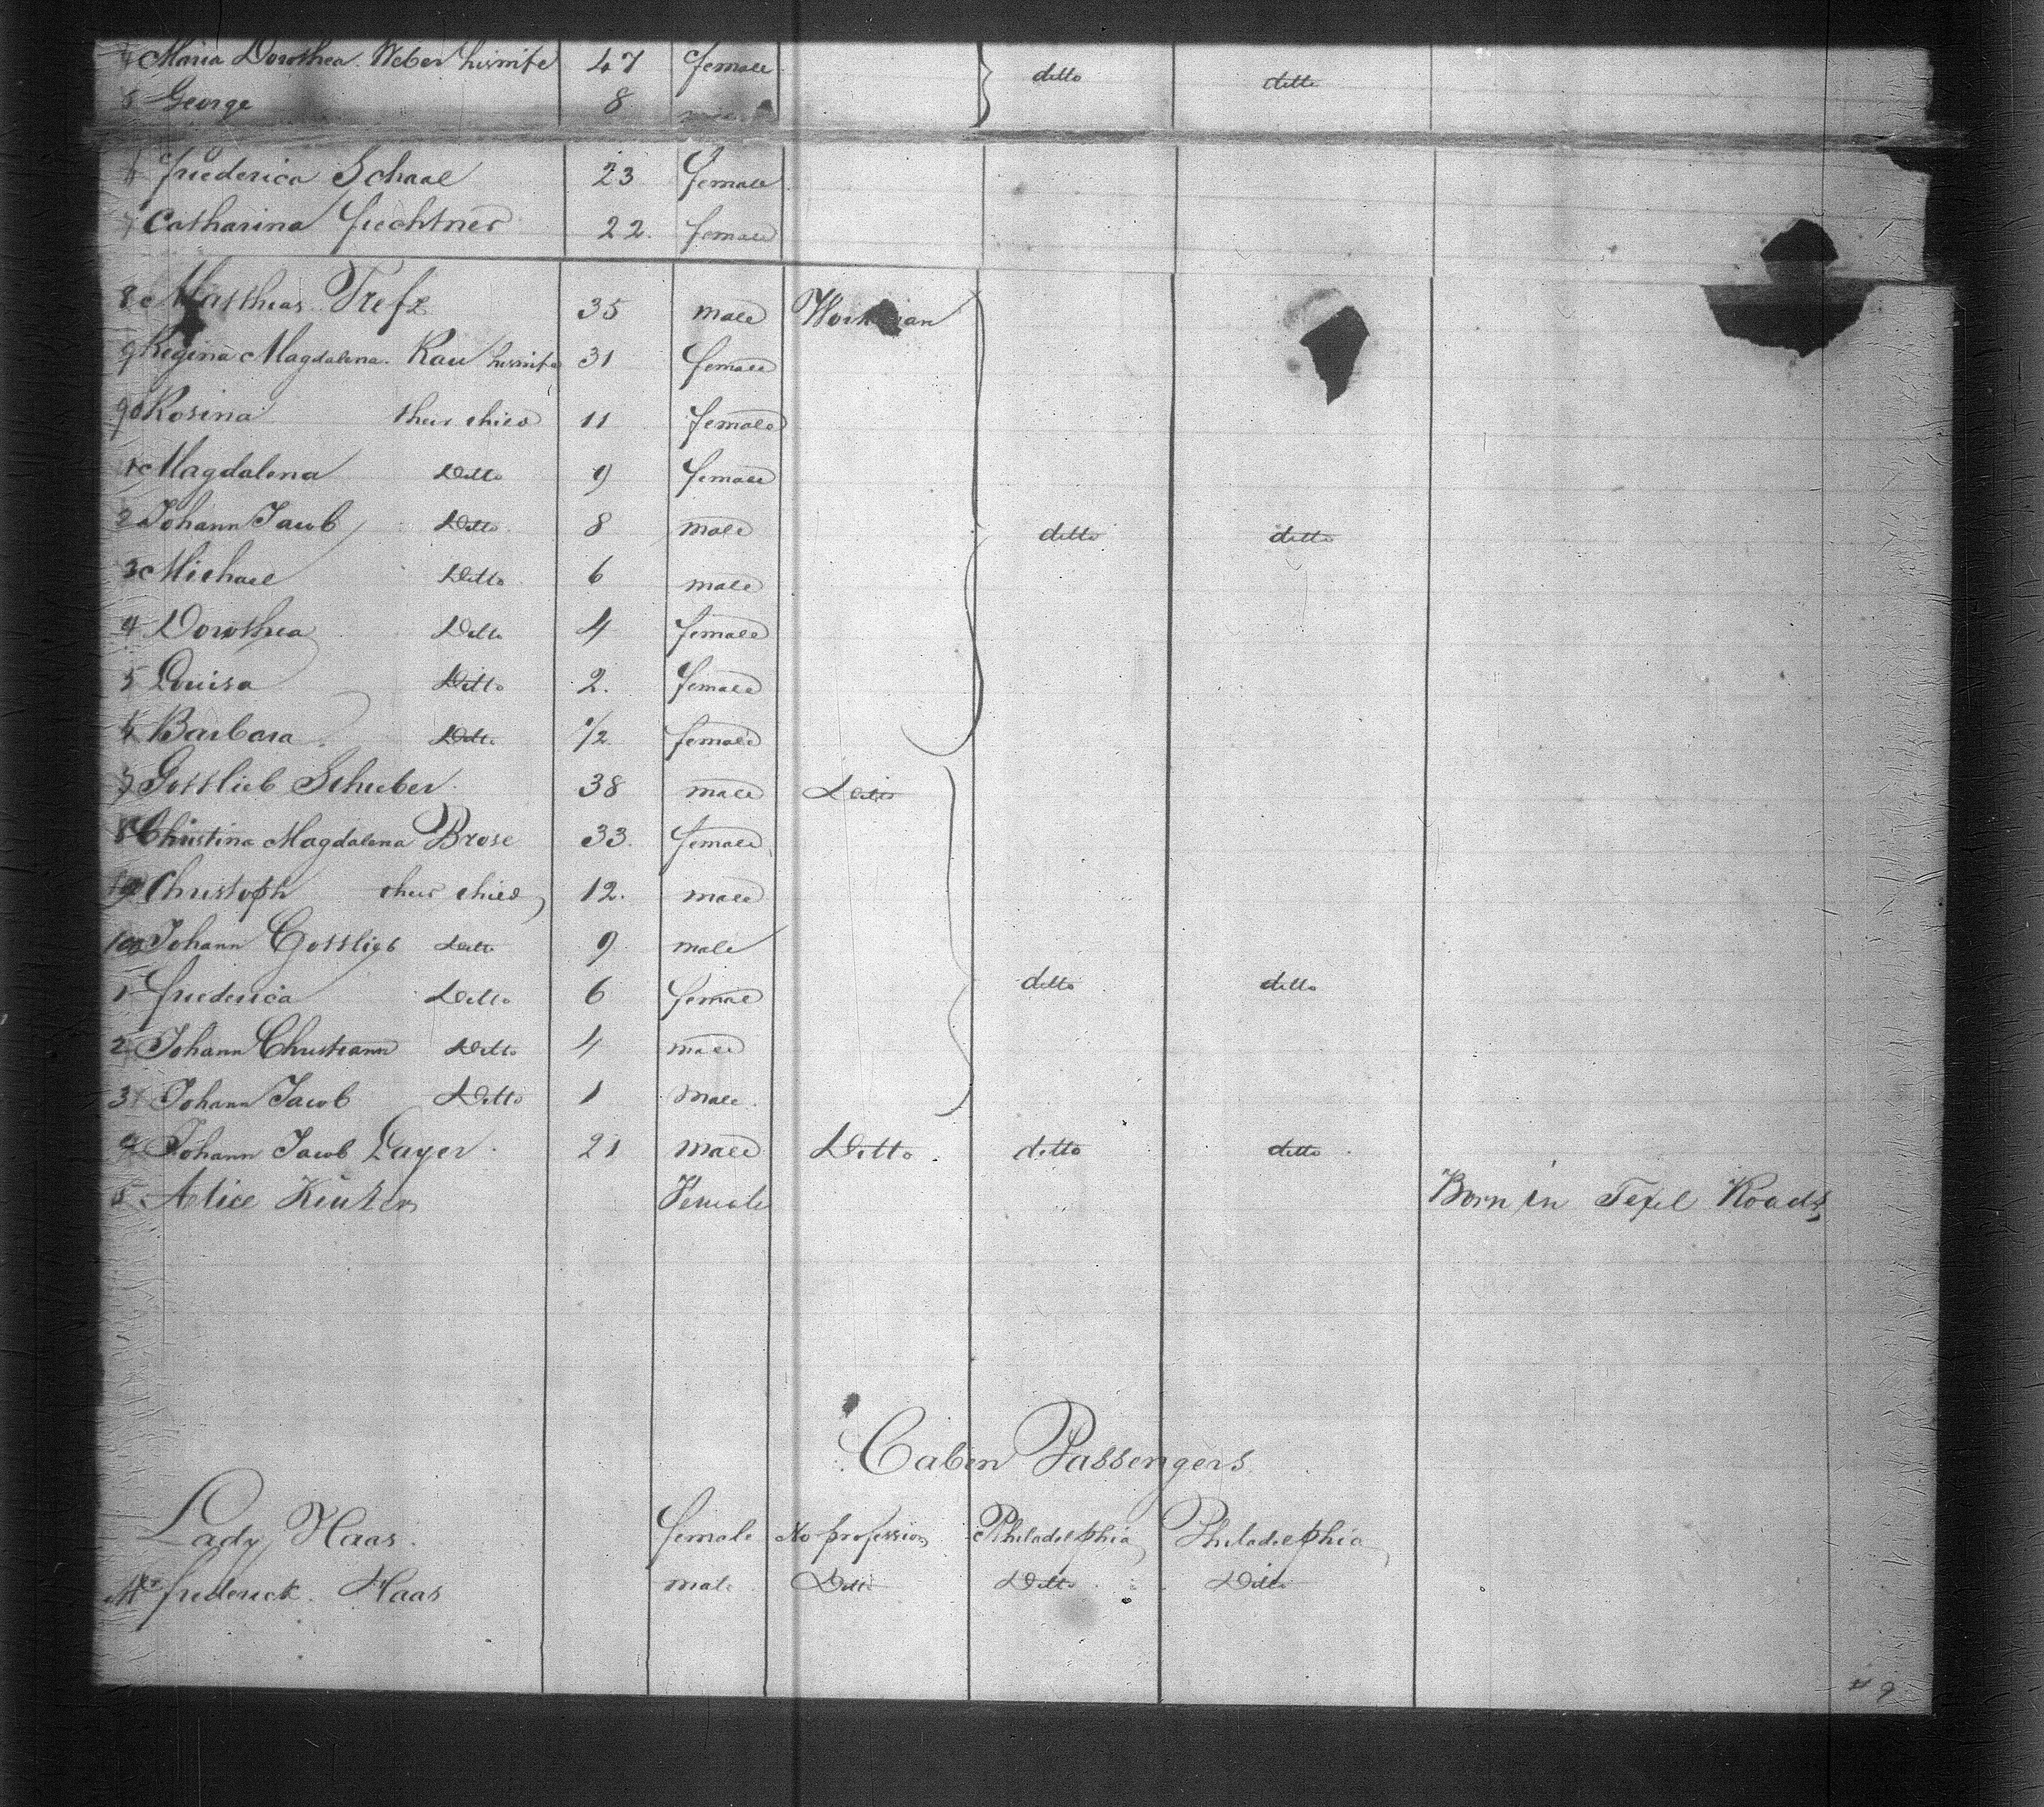 4 Maria Dorothea Weber his wife 47 female ditto ditto
5 George 8
6 Friederica Schaal 23 female
7 Catharina Fiechtner 22. female
8 Matthias Trefz 35 male Workman
9 Regina Magdalena Rau his wife 31 female
90 Rosina their child 11 female
1 Magdalena Ditto 9 female
2 Johann Jacob Ditto 8 male ditto ditto
3 Michael Ditto 6 male
4 Dorothea Ditto 4 female
5 Louisa Ditto 2. female
6 Barbara Ditto 1/2 female
7 Gottlieb Schieber 38 male Ditto
8 Christina Magdalena Brose 33. female
9 Christoph their child 12. male
100 Johann Gottlieb Ditto 9 male
1 Friederica Ditto 6 female ditto ditto
2 Johann Christiann Ditto 4 male
3 Johann Jacob Ditto 1 male
4 Johann Jacob Layer 21 male Ditto ditto ditto
5 Alice Female Born in Texel Roads
Cabin Passengers
Lady Haas. female No profession Philadelphia Philadelphia
Mr Frederick Haas male Ditto Ditto Ditto
# 9